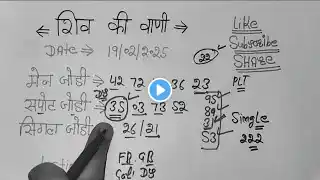 ⇐ शिव की वाणी ⇒
DATE → 19/02/2025
22
Like
Subscribe
SHARE
मेन जोडी → 42 72 36 23
PLT
सपोट जोडी → 35 03 73 52
DS
सिंगल जोडी 26/21
95
89
31
53
Single
222
FD GB
Gali DS